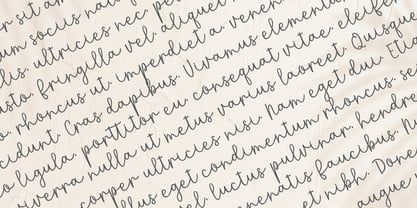 sit am
um sociis nat
lis, ultricies nec, pe
justo, fringilla vel, aliquet
o, rhoncus ut, imperdiet a, venen
cidunt. Cras dapibus. Vivamus elementu
o ligula, porttitor eu, consequat vitae, eleife
verra nulla ut metus varius laoreet. Quisqu
corper ultricies nisi. Nam eget dui. Eti
llus eget condimentum rhoncus, se
l, luctus pulvinar, hendre
enenatis faucibus. Nu
et nibh. Done
augue